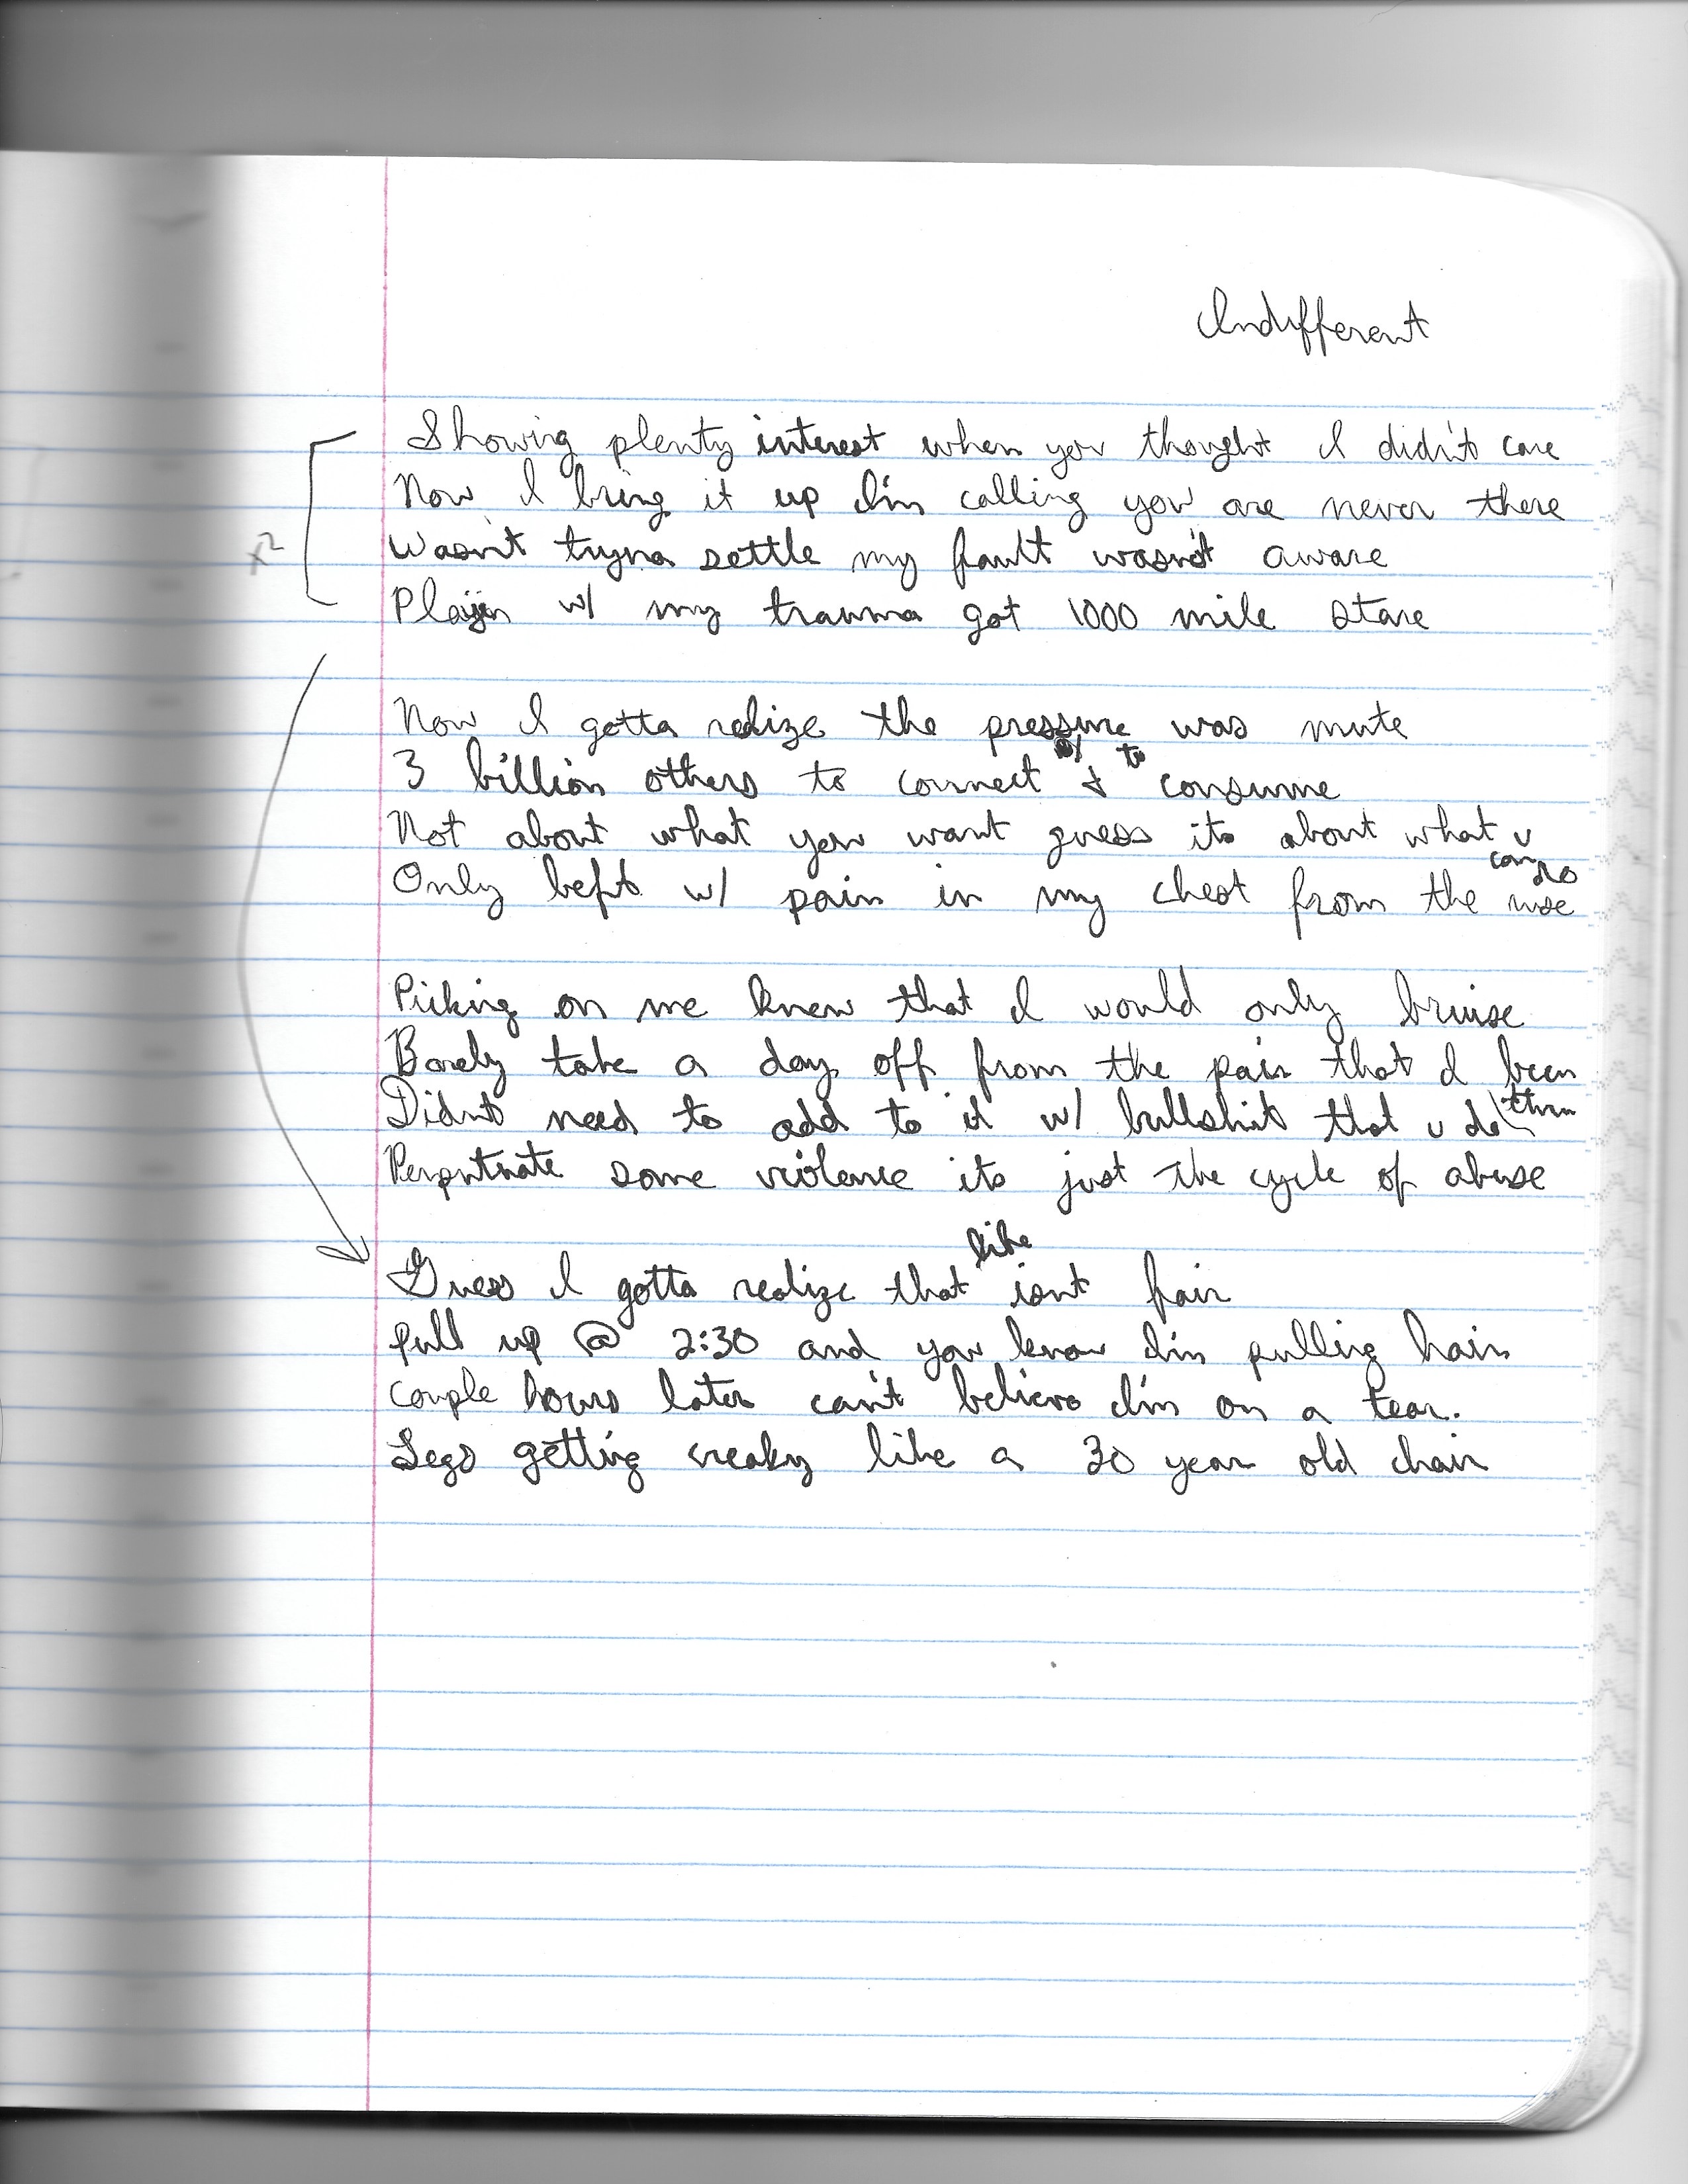 Indifferent
Showing plenty interest when you thought I didn't care
Now I bring it up I'm calling you are never there
x2
Wasn't tryna settle my fault wasn't aware
Playin w/ my trauma got 1000 mile stare
Now I gotta realize the pressure was mute
3 billion others to connect w/ & to consume
Not about what you want guess its about what u can do
Only left w/ pain in my chest from the
Picking on me knew that I would only bruise
Barely take a day off from the pain that I been thru
Didnt need to add to it w/ bullshit that u do
Perputuate some violence its just the cycle of abuse
Guess I gotta realize that like isnt fair
Pull up @ 2:30 and you know I'm pulling hair
Couple hours later can't believe I'm on a tear.
Legs getting creaky like a 30 year old chair